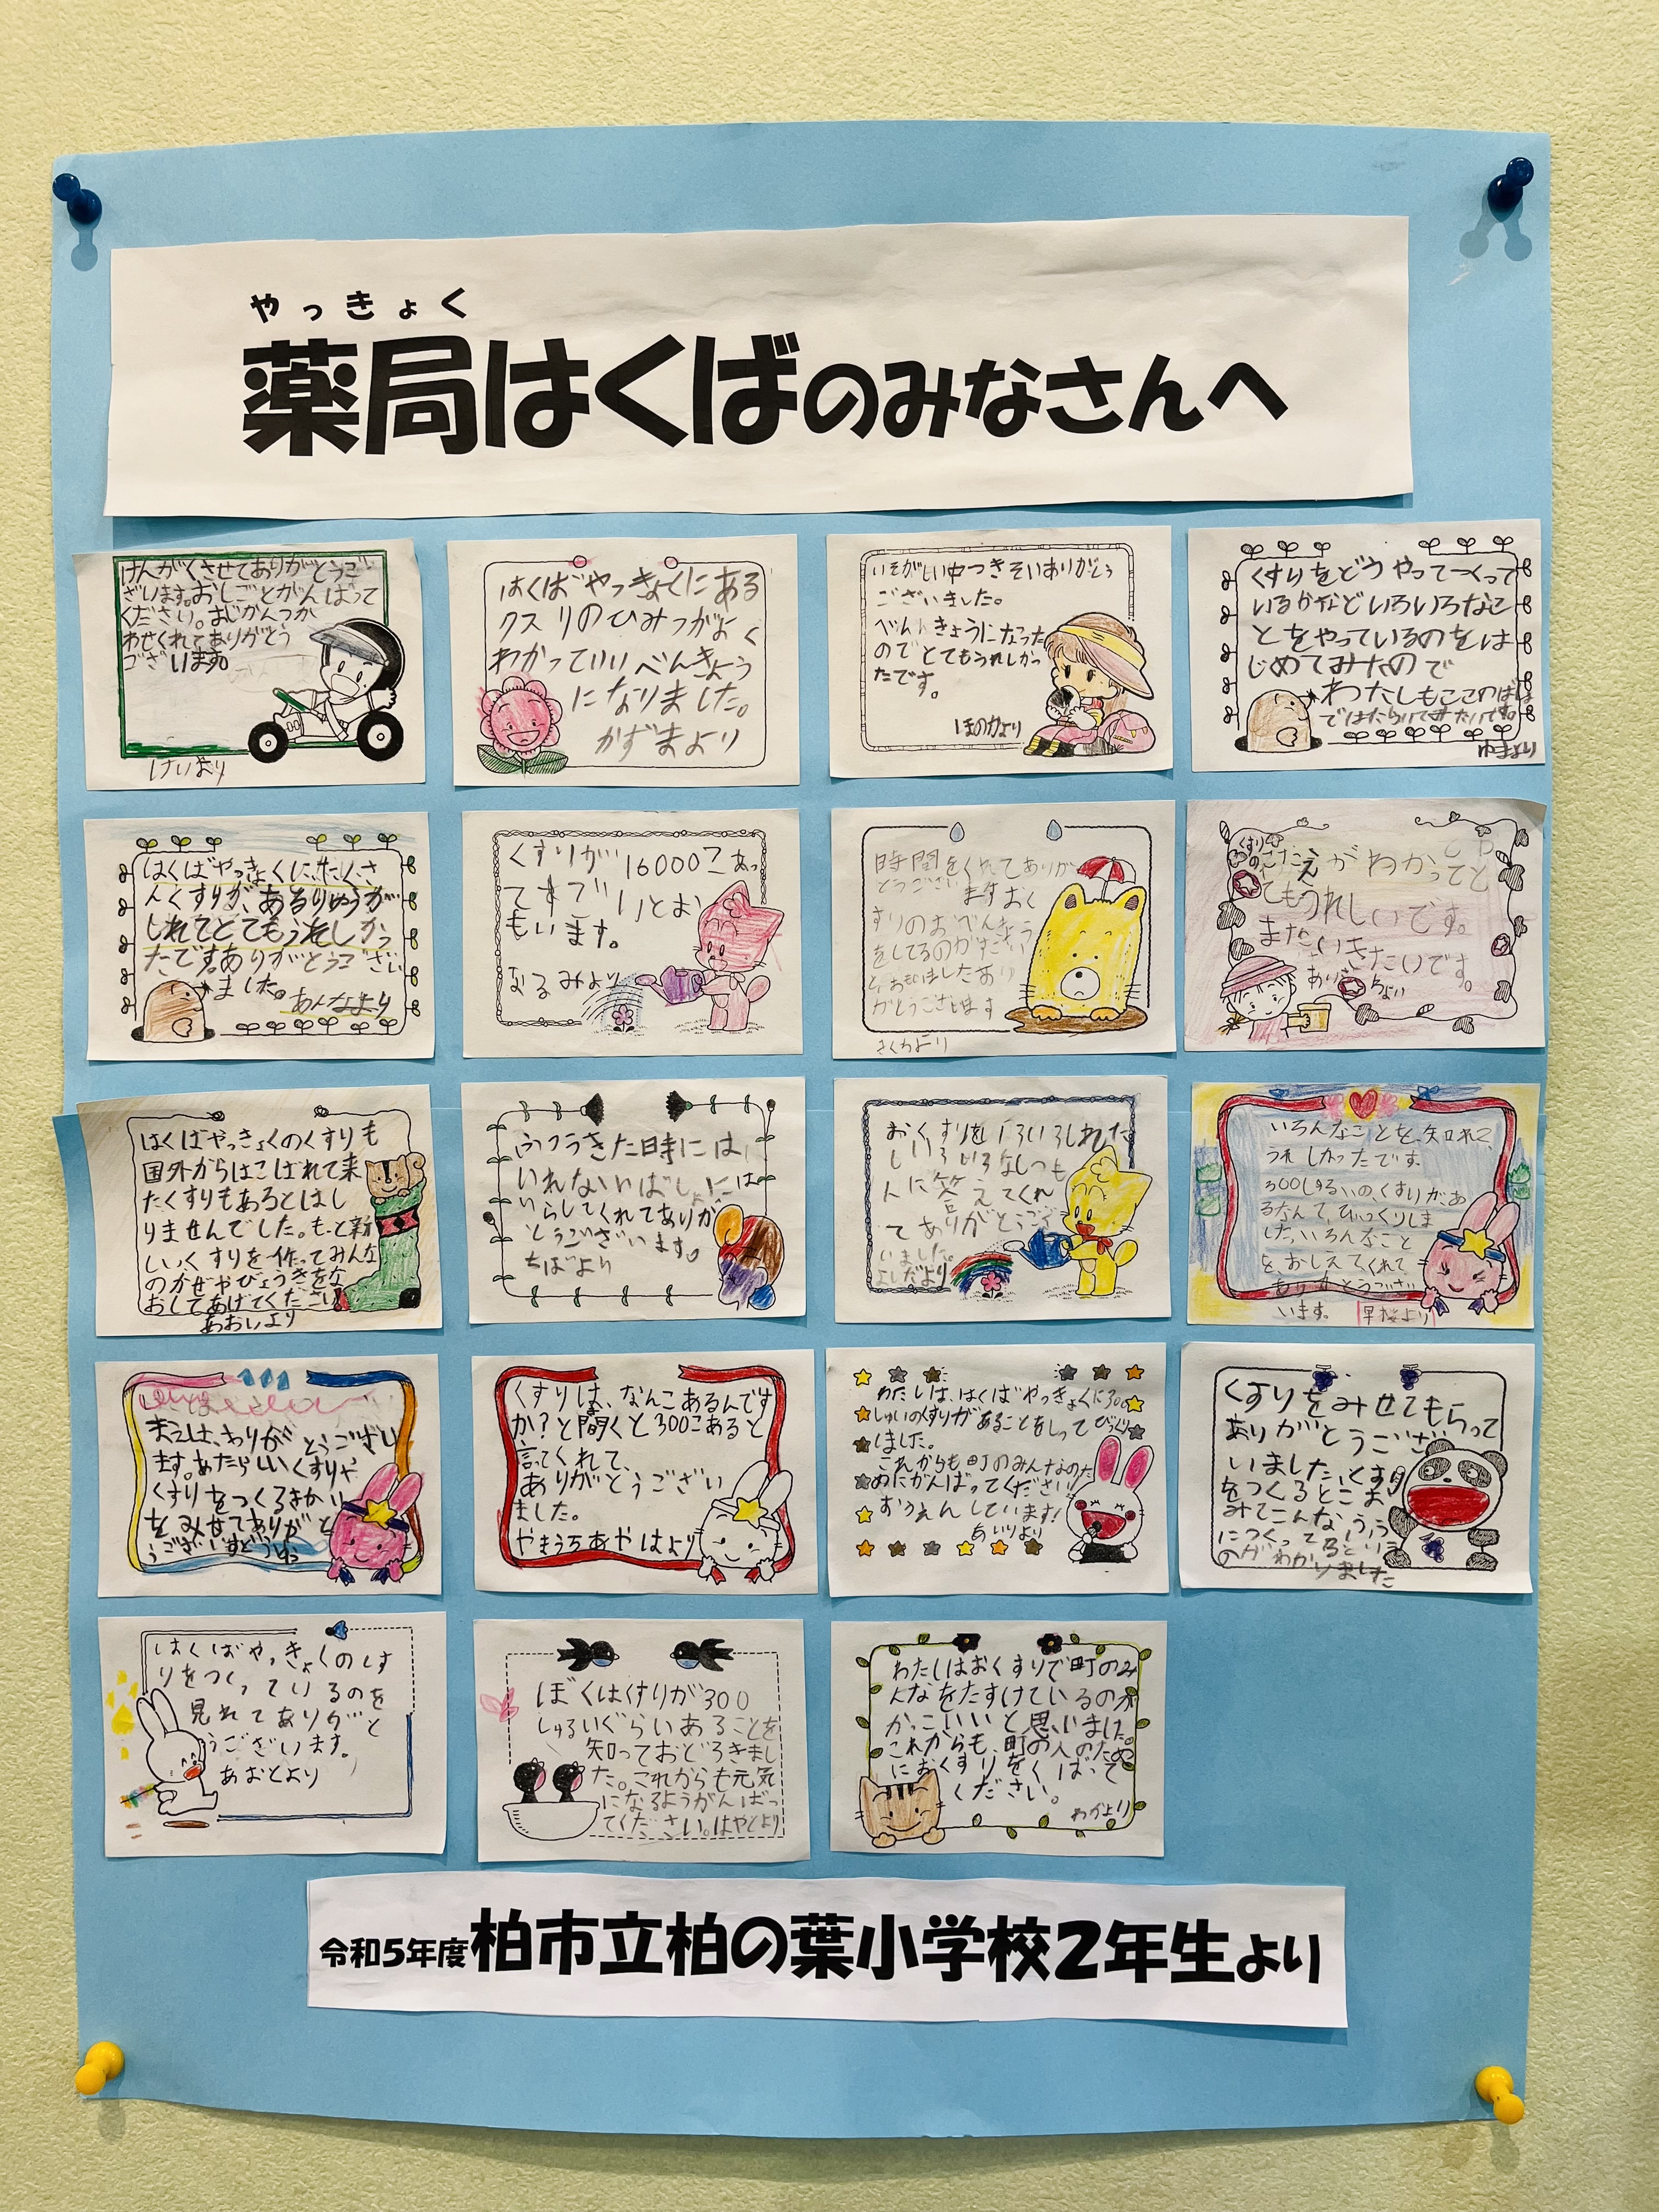 やっきょく
薬局はくばのみなさんへ
けんがくさせてありがとうご
ざいます。おしごとがんばって
ください。おじかんつか
わせくれてありがとう
ございます。
けいより
はくばやっきょくにある
クスリのひみつがよく
わかっていいべんきょう
になりました。
かずまより
いそがしい中つきそいありがとう
ございました。
べんきょうになった
のでとてもうれしかっ
たです。
ほのかより
くすりをどうやってつくって
いるかなどいろいろなこ
とをやっているのをは
じめてみたので
わたしもここのばしょ
ではたらいてみたいです。
ゆまより
はくばやっきょくに、たくさ
んくすりが、あるりゆうが
しれてとてもうれしかっ
たです。ありがとうござい
ました。
あんなより
くすりが16000こあっ
てすごいとお
もいます。
なるみより
時間をくれてありが
とうござい ますおく
すりのおべんきょう
をしてるのが
とおもいましたあり
がとうございます
さくらより
くすり
のこたえがわかってと
てもうれしいです。
またいきたいです。
はくばやっきょくのくすりも
国外からはこばれて来
たくすりもあるとはし
りませんでした。もっと新
しいくすりを作ってみんな
のかぜやびょうきをな
おしてあげてください
あおいより
いれないばしょには
いらしてくれてありが
とうございます。
ちばより
おくすりをいろいろしれた
しいろいろなしつも
んに答えてくれ
てありがとうござ
いました。
よしだより
いろんなことを、知れて
うれしかったです。
300しゅるいの、くすりがあ
るなんて、びっくりしま
した。いろんなこと
を、おしえてくれて
ありがとうござい
います。
早桜より
ます。あたらしいくすりや
くすりをつくるきかい
をみせてありがと
くすりは、なんこあるんです
か？と聞くと300こあると
言ってくれて、
ありがとうござい
ました。
やまうちあやはより
わたしは、はくばやっきょくに300
しゅいのくすりがあることをしってびっくり
しました。
これからも町のみんなのた
めにがんばってください！
おうえんしています！
あいりより
くすりをみせてもらって
ありがとうござい
いました。くすり
をつくるとこよ
みてこんなふう
につくってるという
のがわかりました
はくばやっきょくのくす
りをつくっているのを
見れてありがと
うございます。
あおとより
ぼくはくすりが300
しゅるいぐらいあることを
知っておどろきまし
た。これからも元気
になるようがんばっ
てください。はやとより
わたしはおくすりで町のみ
んなをたすけているのが
かっこいいと思いました。
これからも、町の人のため
におくすりをくばって
ください。
わかより
令和5年度柏市立柏の葉小学校2年生より